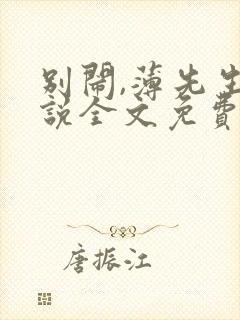 别闹,薄先生
說全文免費
唐振江